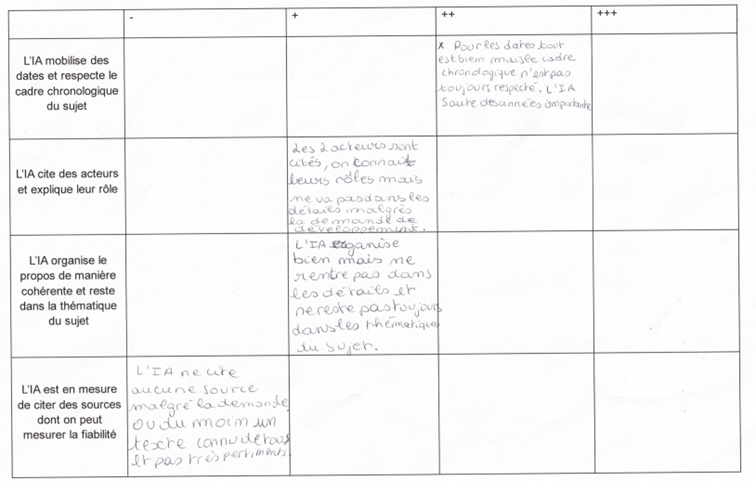 -
+
++
+++
L'IA mobilise des
dates et respecte le
cadre chronologique
du sujet
x Pour les dates tout
est bien mais le cadre
chronologique n'est pas
toujours respecté. L'IA
saute des années importante
L'IA cite des acteurs
et explique leur rôle
Les 2 acteurs sont
cités, on connait
leurs rôles mais
ne va pas dans les
détails malgrès
la demande de
développement.
L'IA organise le
propos de manière
cohérente et reste
dans la thématique
du sujet
L'IA organise
bien mais ne
rentre pas dans
les détails et
ne reste pas toujours
dans les thématiques
du sujet.
L'IA est en mesure
de citer des sources
dont on peut
mesurer la fiabilité
L'IA ne cite
aucune source
malgré la demande
ou du moin un
texte connu de tous
et pas très pertiments